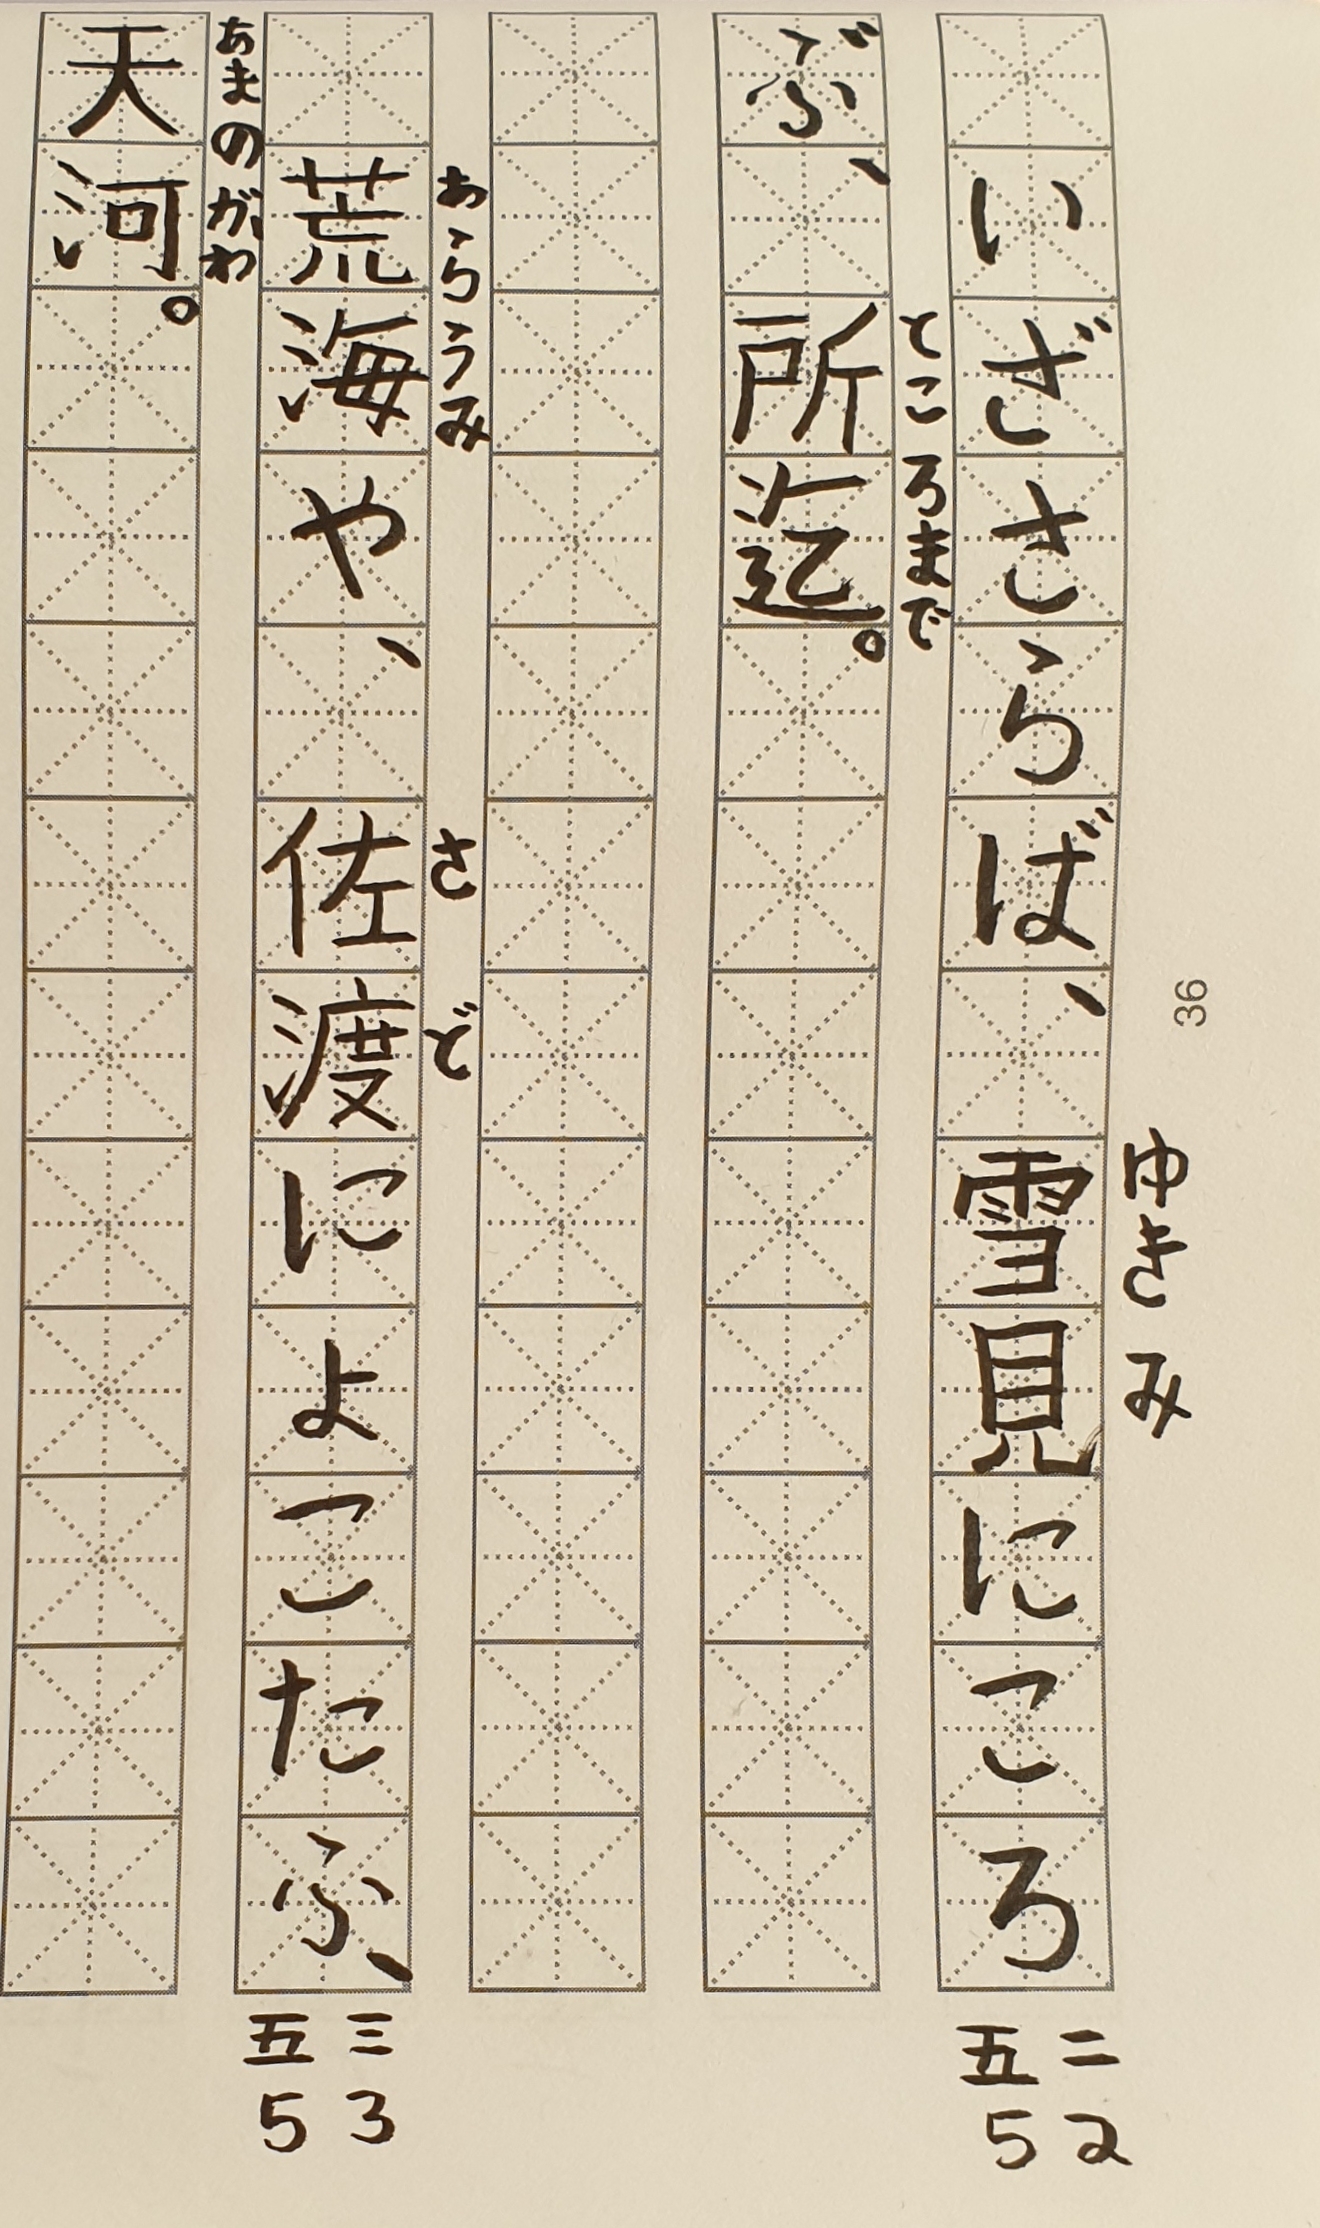 36
ゆきみ
いざさらば、雪見にころ
二2
五5
ところまで
ぶ、所迄。
あらうみ
さど
荒海や、佐渡によこたふ、
三3
五5
あまのがわ
天河。